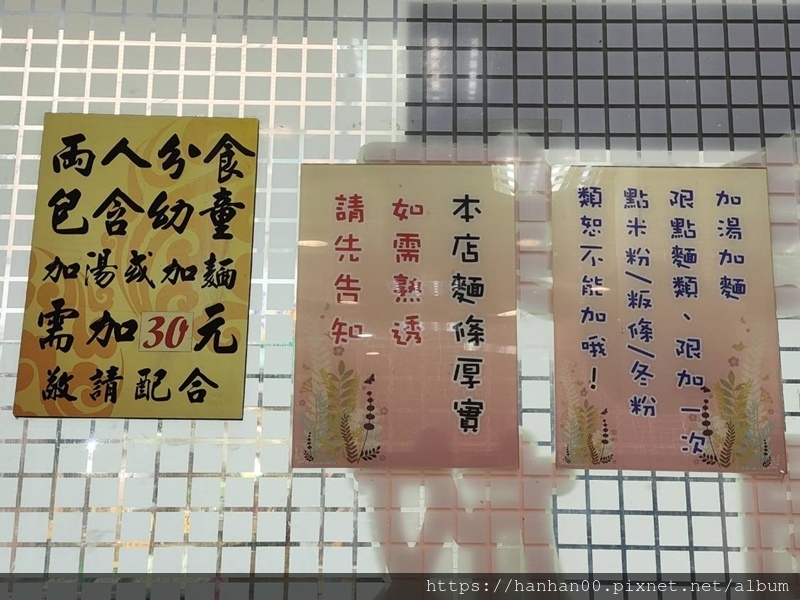 兩人分食
包含幼童
加湯或加麵
需加30元
敬請配合
本店麵條厚實
如需熟透
請先告知
加湯加麵
限點麵類、限加一次
點米粉/粄條/冬粉
類恕不能加哦！
https://hanhan00.pixnet.net/album